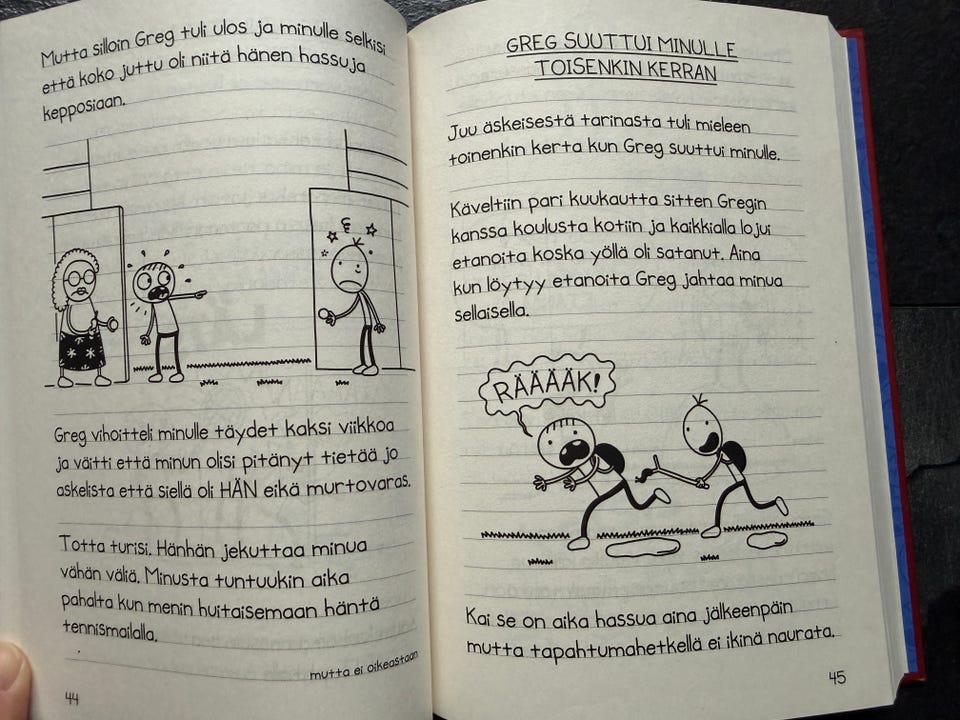 Mutta silloin Greg tuli ulos ja minulle selkisi
että koko juttu oli niitä hänen hassuja
kepposiaan.
Greg vihoitteli minulle täydet kaksi viikkoa
ja väitti että minun olisi pitänyt tietää jo
askelista että siellä oli HÄN eikä murtovaras.
Totta turisi. Hänhän jekuttaa minua
vähän väliä. Minusta tuntuukin aika
pahalta kun menin huitaisemaan häntä
tennismailalla.
mutta ei oikeastaan
44
GREG SUUTTUI MINULLE
TOISENKIN KERRAN
Juu äskeisestä tarinasta tuli mieleen
toinenkin kerta kun Greg suuttui minulle.
Käveltiin pari kuukautta sitten Gregin
kanssa koulusta kotiin ja kaikkialla lojui
etanoita koska yöllä oli satanut. Aina
kun löytyy etanoita Greg jahtaa minua
sellaisella.
RÄÄÄÄK!
Kai se on aika hassua aina jälkeenpäin
mutta tapahtumahetkellä ei ikinä naurata.
45